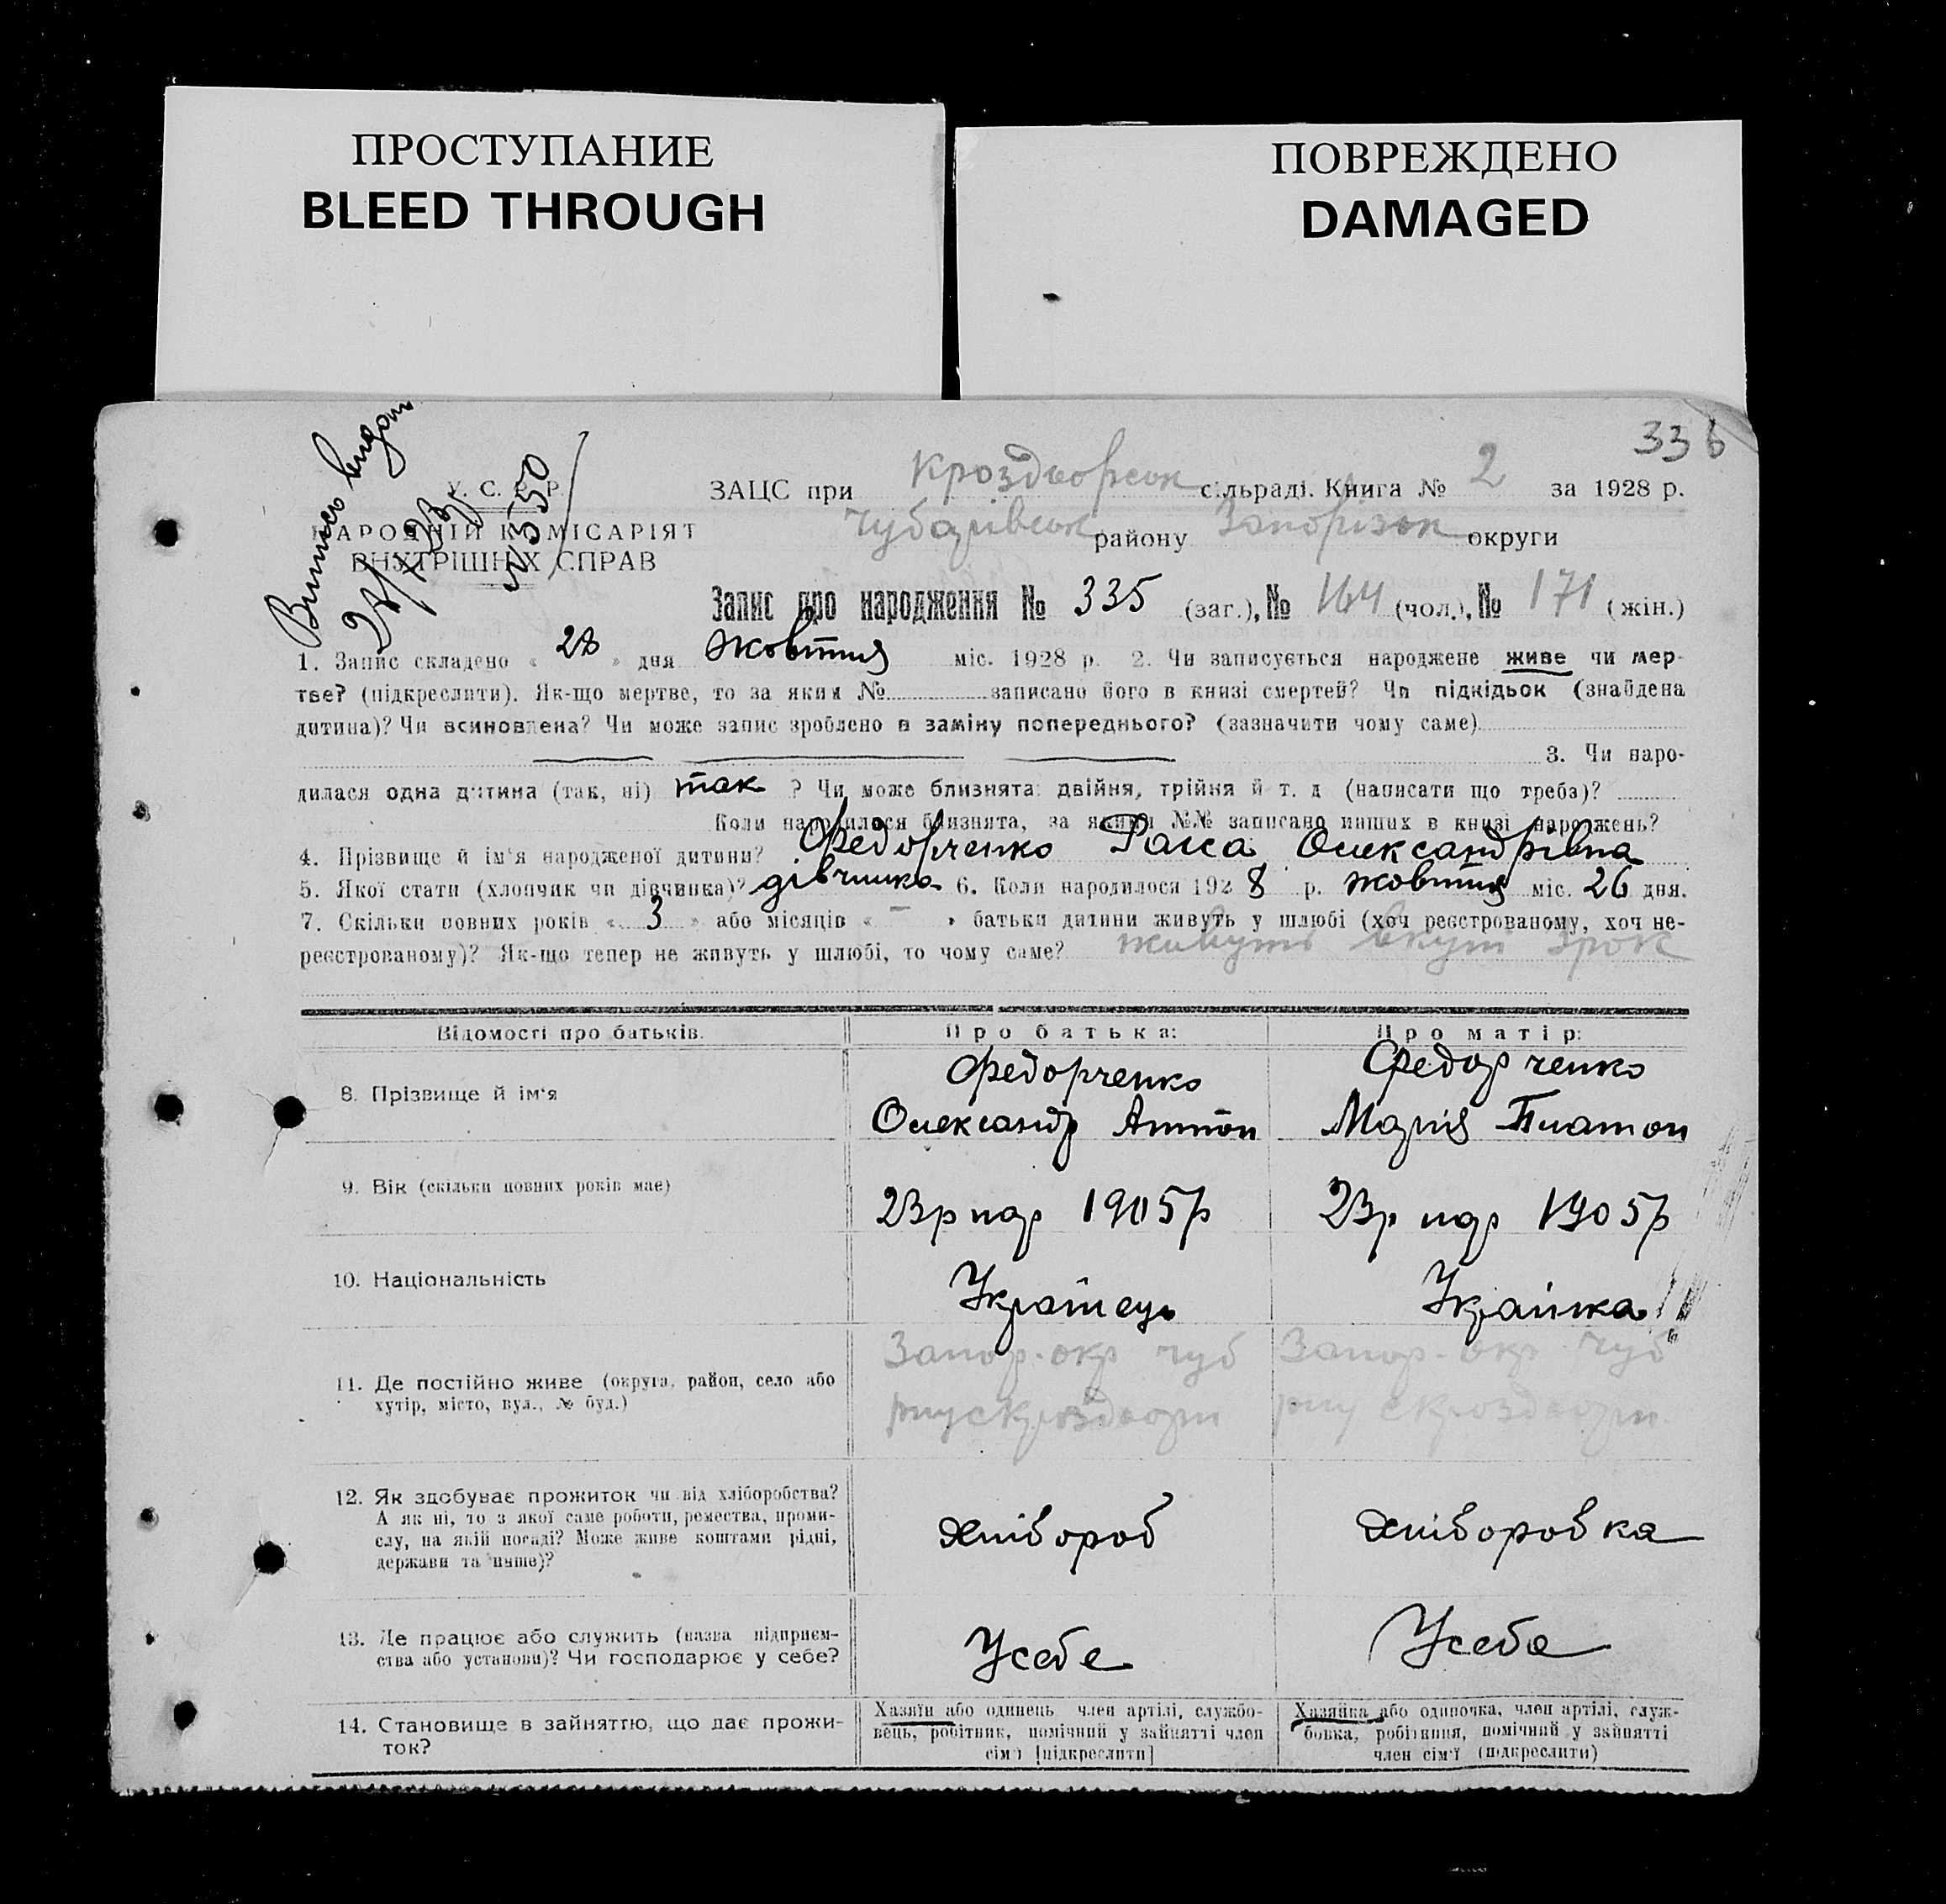 ПРОСТУПАНИЕ
BLEED THROUGH
ПОВРЕЖДЕНО
DAMAGED
336
Випись видан
№ 350
У. С. Р. Р.
НАРОДНІЙ КОМІСАРІЯТ
ВНУТРІШНІХ СПРАВ
ЗАЦС при Кроздворськ сільраді. Книга № 2 за 1928 р.
Чубарівськ району Запорізьк округи
Запис про народження № 335 (заг.), № 164 (чол.), № 171 (жін.)
1. Запис складено « 28 » дня жовтня міс. 1928 р. 2. Чи записується народжене живе чи мер-
тве? (підкреслити). Як-що мертве, то за яким № записано його в книзі смертей? Чи підкідьок (знайдена
дитина)? Чи всиновлена? Чи може запис зроблено в заміну попереднього? (зазначити чому саме)
3. Чи наро-
дилася одна дитина (так, ні) так ? Чи може близнята: двійня, трійня й т. д (написати що треба)?
Коли народилося близнята, за якими №№ записано инших в книзі народжень?
4. Прізвище й ім'я народженої дитини? Федорченко Раиса Олександрівна
5. Якої стати (хлопчик чи дівчинка)? дівчинка 6. Коли народилося 1928 р. жовтня міс. 26 дня.
7. Скільки повних років « 3 » або місяців « – » батьки дитини живуть у шлюбі (хоч реєстрованому, хоч не-
реєстрованому)? Як-що тепер не живуть у шлюбі, то чому саме? живуть вкупі 3рок
Відомості про батьків.
Про батька:
Про матір:
8. Прізвище й ім'я
Федорченко
Олександр Антон
Федорченко
Марія Платон
9. Вік (скільки повних років має)
23р нар 1905р
23р нар 1905р
10. Національність
Українець
Українка
11. Де постійно живе (округа, район, село або
хутір, місто, вул., № буд.)
Запор. окр Чуб
рну с Кроздворн
Запор. окр Чуб
рну с Кроздворн.
12. Як здобуває прожиток чи від хліборобства?
А як ні, то з якої саме роботи, ремества, проми-
слу, на якій посаді? Може живе коштами рідні,
держави та инше)?
хлібороб
хліборобка
13. Де працює або служить (назва підприєм-
ства або установи)? Чи господарює у себе?
Усебе
Усебе
14. Становище в зайняттю, що дає прожи-
ток?
Хазяїн або одинець член артілі, службо-
вець, робітник, помічний у зайнятті член
сім'ї [підкреслити]
Хазяйка або одиночка, член артілі, служ-
бовка, робітниця, помічний у зайнятті
член сім'ї (підкреслити)